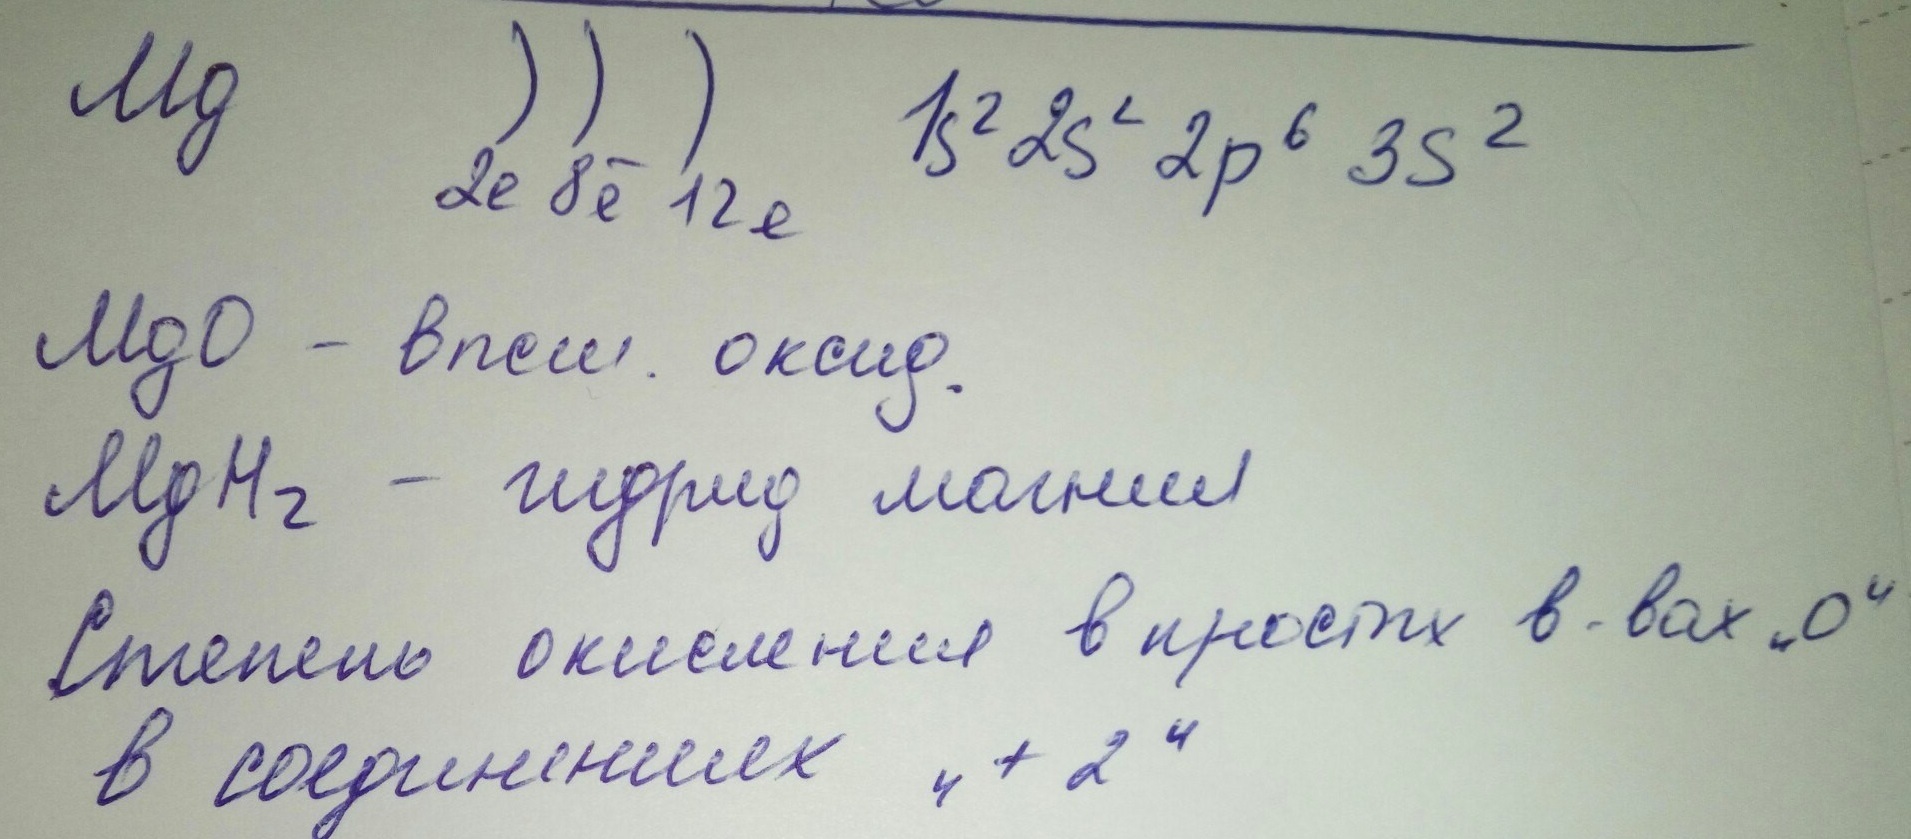 Mg ) ) ) 1s² 2s² 2p⁶ 3s²
2e 8ē 12e
MgO – высш. оксид.
MgH₂ – гидрид магния
Степень окисления в простых в-вах „0“
в соединениях „+2“